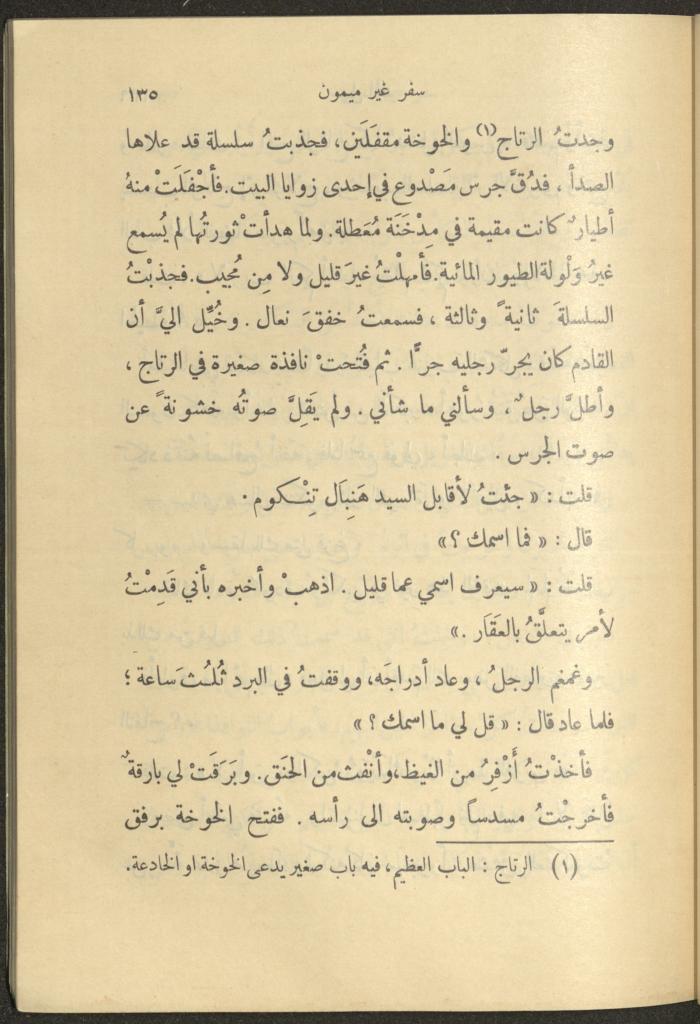 سفر غير ميمون ١٣٥
وجدتُ الرتاج(١) والخوخة مقفَلَين، فجذبتُ سلسلة قد علاها
الصدأ ، فدُقَّ جرس مَصْدوع في إحدى زوايا البيت. فأجْفَلَتْ منهُ
أطيارٌ كانت مقيمة في مِدْخَنَة مُعَطلة. ولما هدأتْ ثورتُها لم يُسمع
غيرُ وَلْولة الطيور المائية. فأمهلْتُ غيرَ قليل ولا مِن مُجيب. فجذبْتُ
السلسلةَ ثانيةً وثالثة ، فسمعتُ خفقَ نعال . وخُيِّل اليَّ أن
القادم كان يجرّ رجليه جرًّا . ثم فُتحتْ نافذة صغيرة في الرتاج ،
وأطلَّ رجلٌ ، وسألني ما شأني . ولم يَقِلَّ صوتُه خشونةً عن
صوت الجرس .
قلت : « جئتُ لأقابل السيد هَنِبَال تِنْكوم .
قال : « فما اسمك ؟»
قلت : « سيعرف اسمي عما قليل . اذهبْ وأخبره بأني قَدِمْتُ
لأمر يتعلَّقُ بالعَقَار .»
وغمغم الرجلُ ، وعاد أدراجَه، ووقفتُ في البرد ثُلُثَ ساعة ؛
فلما عاد قال : « قل لي ما اسمك ؟ »
فأخذْتُ أَزْفِرُ من الغيظ، وأنْفث من الحَنَق. وبَرَقَتْ لي بارقةٌ
فأخرجْتُ مسدساً وصوبته الى رأسه . ففتح الخوخة برفق
(١) الرتاج : الباب العظيم ، فيه باب صغير يدعى الخوخة او الخادعة.